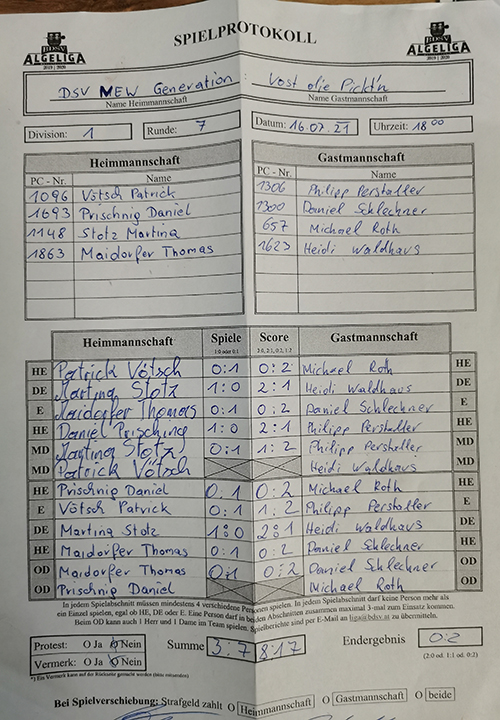 BDSV
ALGELIGA
2019 | 2020
SPIELPROTOKOLL
BDSV
ALGELIGA
2019 | 2020
DSV MEW Generation : Vost olie Pickt'n
Name Heimmannschaft Name Gastmannschaft
Division: 1 Runde: 7 Datum: 16.07.21 Uhrzeit: 18 00
Heimmannschaft Gastmannschaft
PC - Nr. Name PC - Nr. Name
1096 Vötsch Patrick 1306 Philipp Perstaller
1693 Prischnig Daniel 1300 Daniel Schlechner
1148 Stotz Martina 657 Michael Roth
1863 Maidorfer Thomas 1623 Heidi Waldhaus
Heimmannschaft Spiele Score Gastmannschaft
1:0 oder 0:1 2:0, 2:1, 0:2, 1:2
HE Patrick Vötsch 0:1 0:2 Michael Roth HE
DE Martina Stotz 1:0 2:1 Heidi Waldhaus DE
E Maidorfer Thomas 0:1 0:2 Daniel Schlechner E
HE Daniel Prisching 1:0 2:1 Philipp Perstaller HE
MD Martina Stotz 0:1 1:2 Philipp Perstaller MD
MD Patrick Vötsch Heidi Waldhaus MD
HE Prischnig Daniel 0:1 0:2 Michael Roth HE
E Vötsch Patrick 0:1 1:2 Philipp Perstaller E
DE Martina Stotz 1:0 2:1 Heidi Waldhaus DE
HE Maidorfer Thomas 0:1 0:2 Daniel Schlechner HE
OD Maidorfer Thomas 0:1 0:2 Daniel Schlechner OD
OD Prischnig Daniel Michael Roth OD
In jedem Spielabschnitt müssen mindestens 4 verschiedene Personen spielen. In jedem Spielabschnitt darf keine Person mehr als
ein Einzel spielen, egal ob HE, DE oder E. Eine Person darf in beiden Abschnitten zusammen maximal 3-mal zum Einsatz kommen.
Beim OD kann auch 1 Herr und 1 Dame im Team spielen. Spielberichte sind per E-Mail an liga@bdsv.at zu übermitteln.
Protest: O Ja O Nein Summe 3:7 8:17 Endergebnis 0:2
Vermerk: O Ja O Nein (2:0 od. 1:1 od. 0:2)
*) Ein Vermerk kann auf der Rückseite gemacht werden (bitte ankreuzen)
Bei Spielverschiebung: Strafgeld zahlt O Heimmannschaft O Gastmannschaft O beide